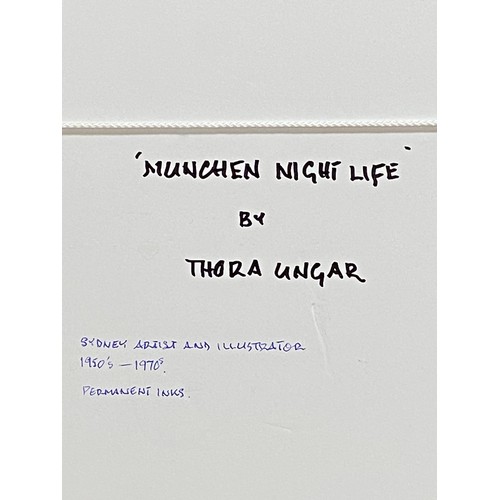 'MUNCHEN NIGHT LIFE'
BY
THORA UNGAR
SYDNEY ARTIST AND ILLUSTRATOR
1950's – 1970s.
PERMANENT INKS.